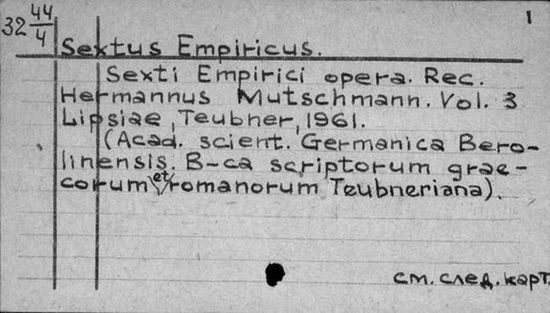 I
32 44/4
Sextus Empiricus.
Sexti Empirici opera. Rec.
Hermannus Mutschmann. Vol. 3
Lipsiae, Teubner, 1961.
(Acad. scient. Germanica Bero-
linensis. B-ca scriptorum grae-
corum et romanorum Teubneriana).
см. след. карт.